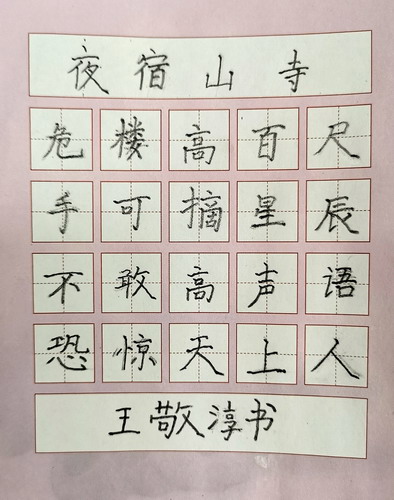 夜宿山寺
危楼高百尺
手可摘星辰
不敢高声语
恐惊天上人
王敬淳书